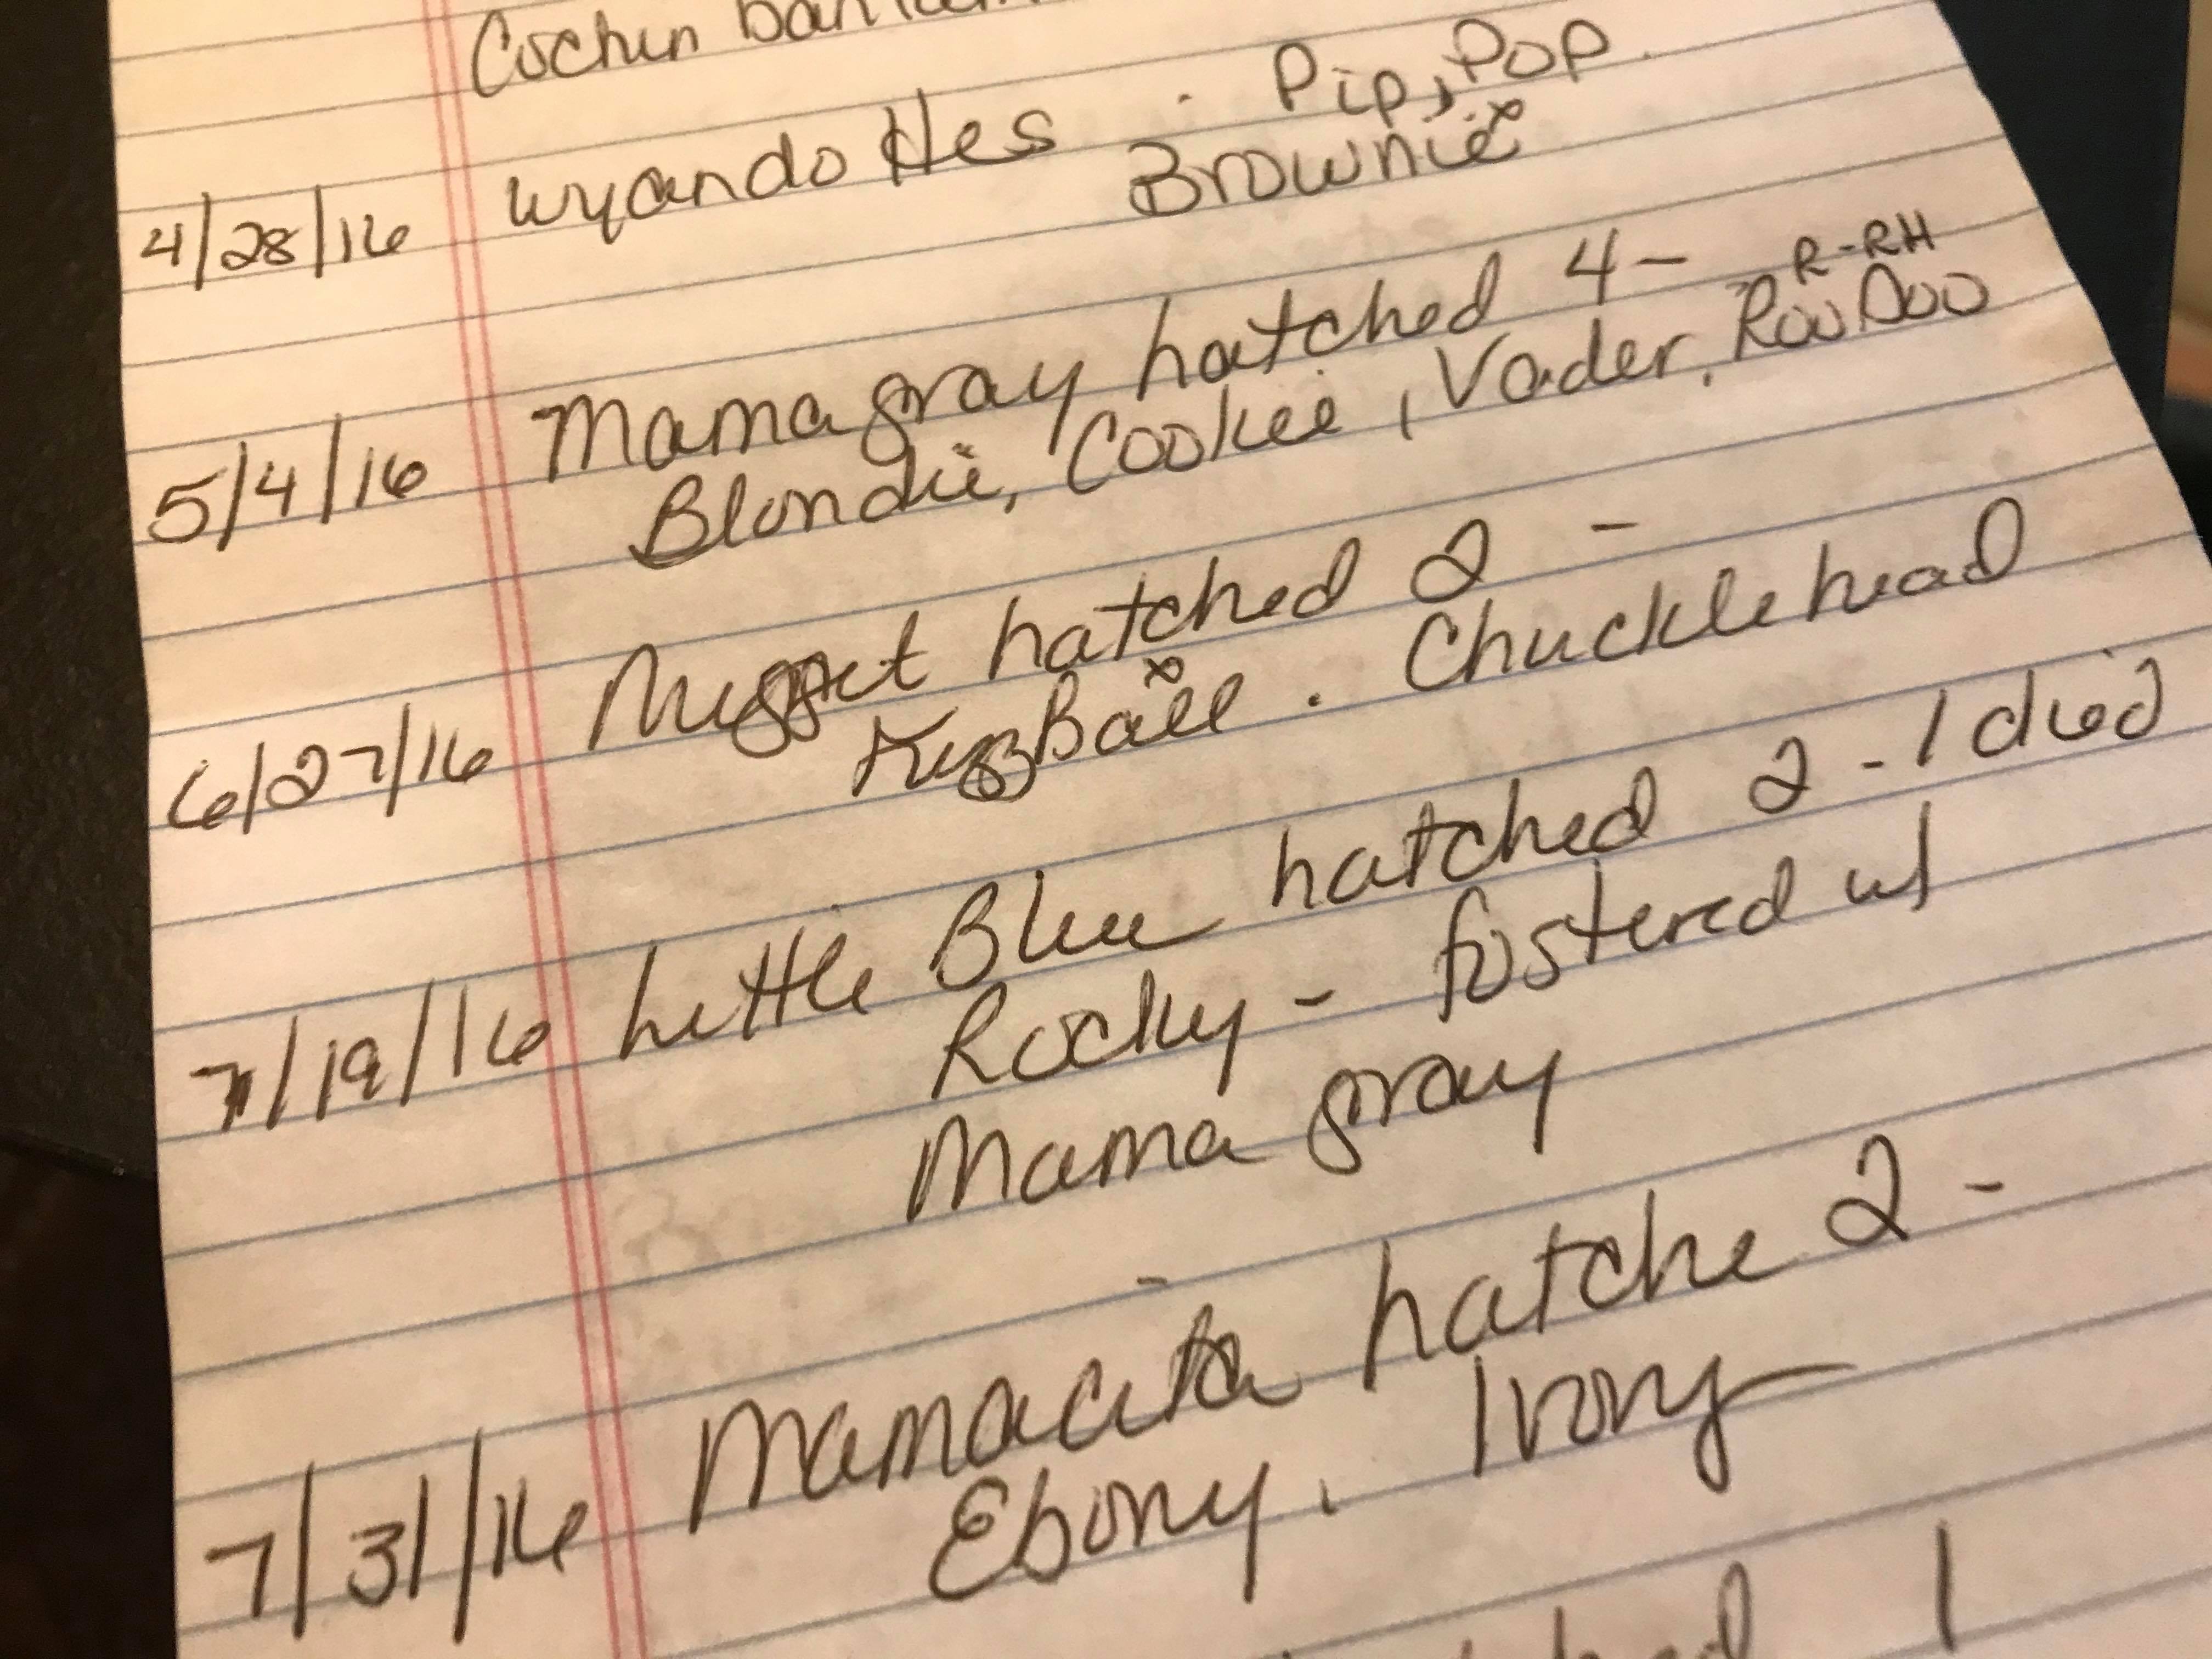 Cochin
Wyandottes . Pip, Pop
4/28/16 Brownie
Mama gray hatched 4 - R-RH
5/4/16 Blondie, Cookie, Vader, RooDoo
Nugget hatched 2 -
6/27/16 FuzzBall . Chucklehead
Little Blue hatched 2 - 1 died
7/19/16 Rocky - fostered w/
Mama gray
Mamacita hatche 2 -
7/31/16 Ebony, Ivory
1